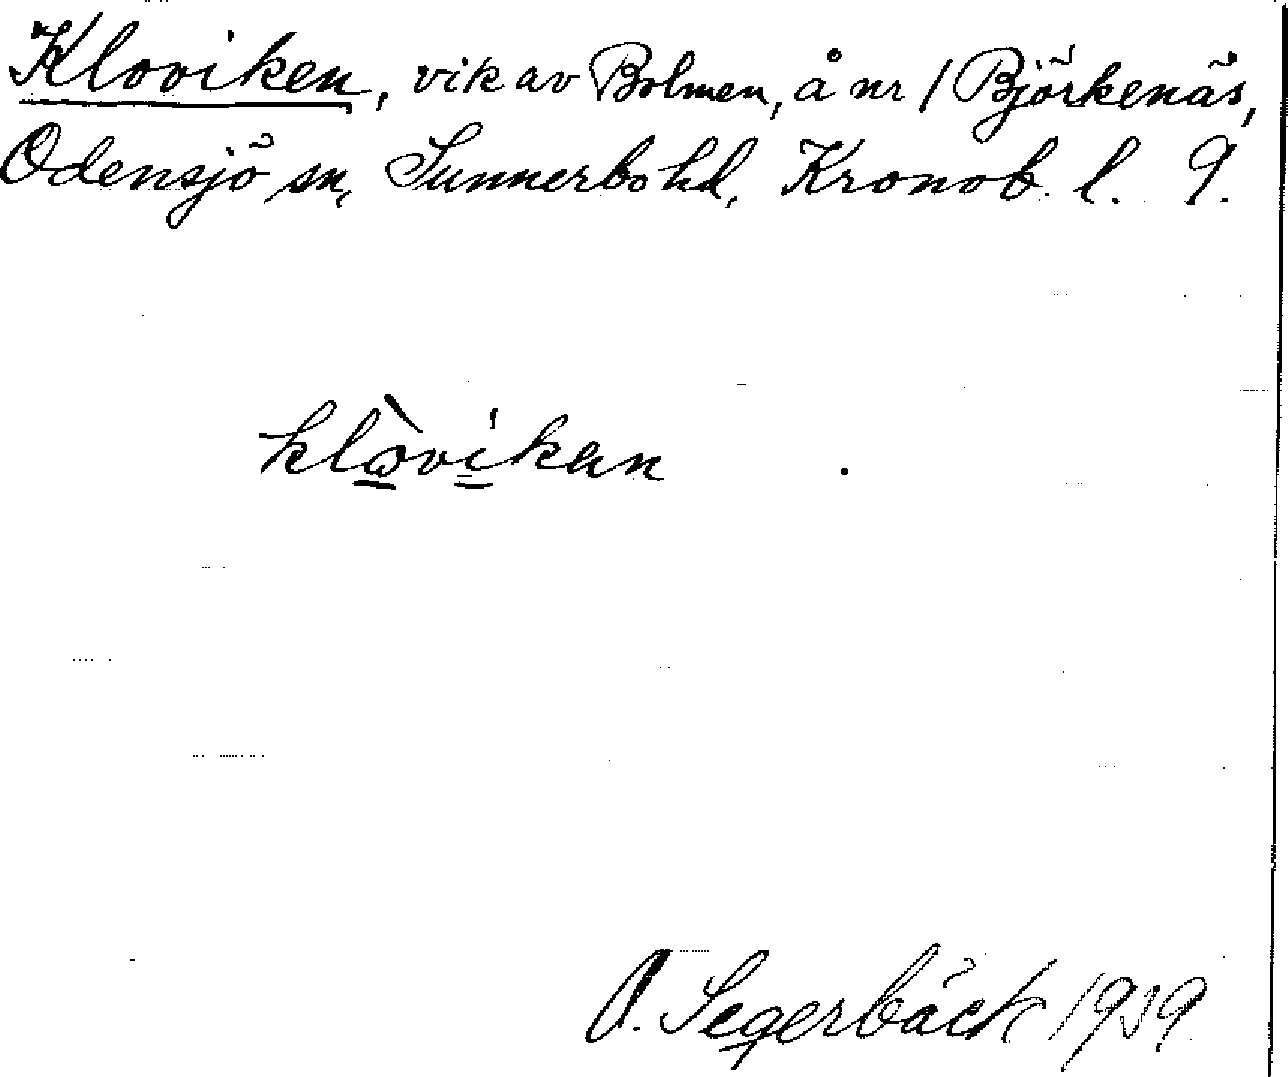 Kloviken, vik av Bolmen, å nr 1 Björkenäs,
Odensjö sn, Sunnerbo hd, Kronob. l. 9.
klòvíkan
O. Segerbäck 1939